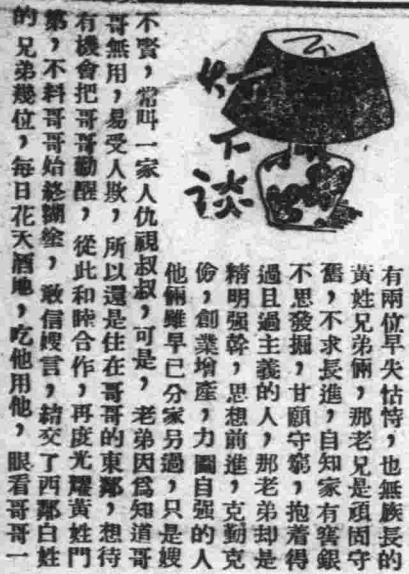 灯下谈
有兩位早失怙恃，也無族長的
黃姓兄弟倆，那老兄是頑固守
舊，不求長進，自知家有窖銀
不思發掘，甘願守窮，抱着得
過且過主義的人，那老弟却是
精明强幹，思想前進，克勤克
儉，創業增產，力圖自强的人
他倆雖早已分家另過，只是嫂
不賢，常叫一家人仇視叔叔，可是，老弟因爲知道哥
哥無用，易受人欺，所以還是住在哥哥的東鄰，想待
有機會把哥哥勸醒，從此和睦合作，再度光耀黃姓門
第，不料哥哥始終糊塗，敢信嫂言，結交了西鄰白姓
的兄弟幾位，每日花天酒地，吃他用他，眼看哥哥一